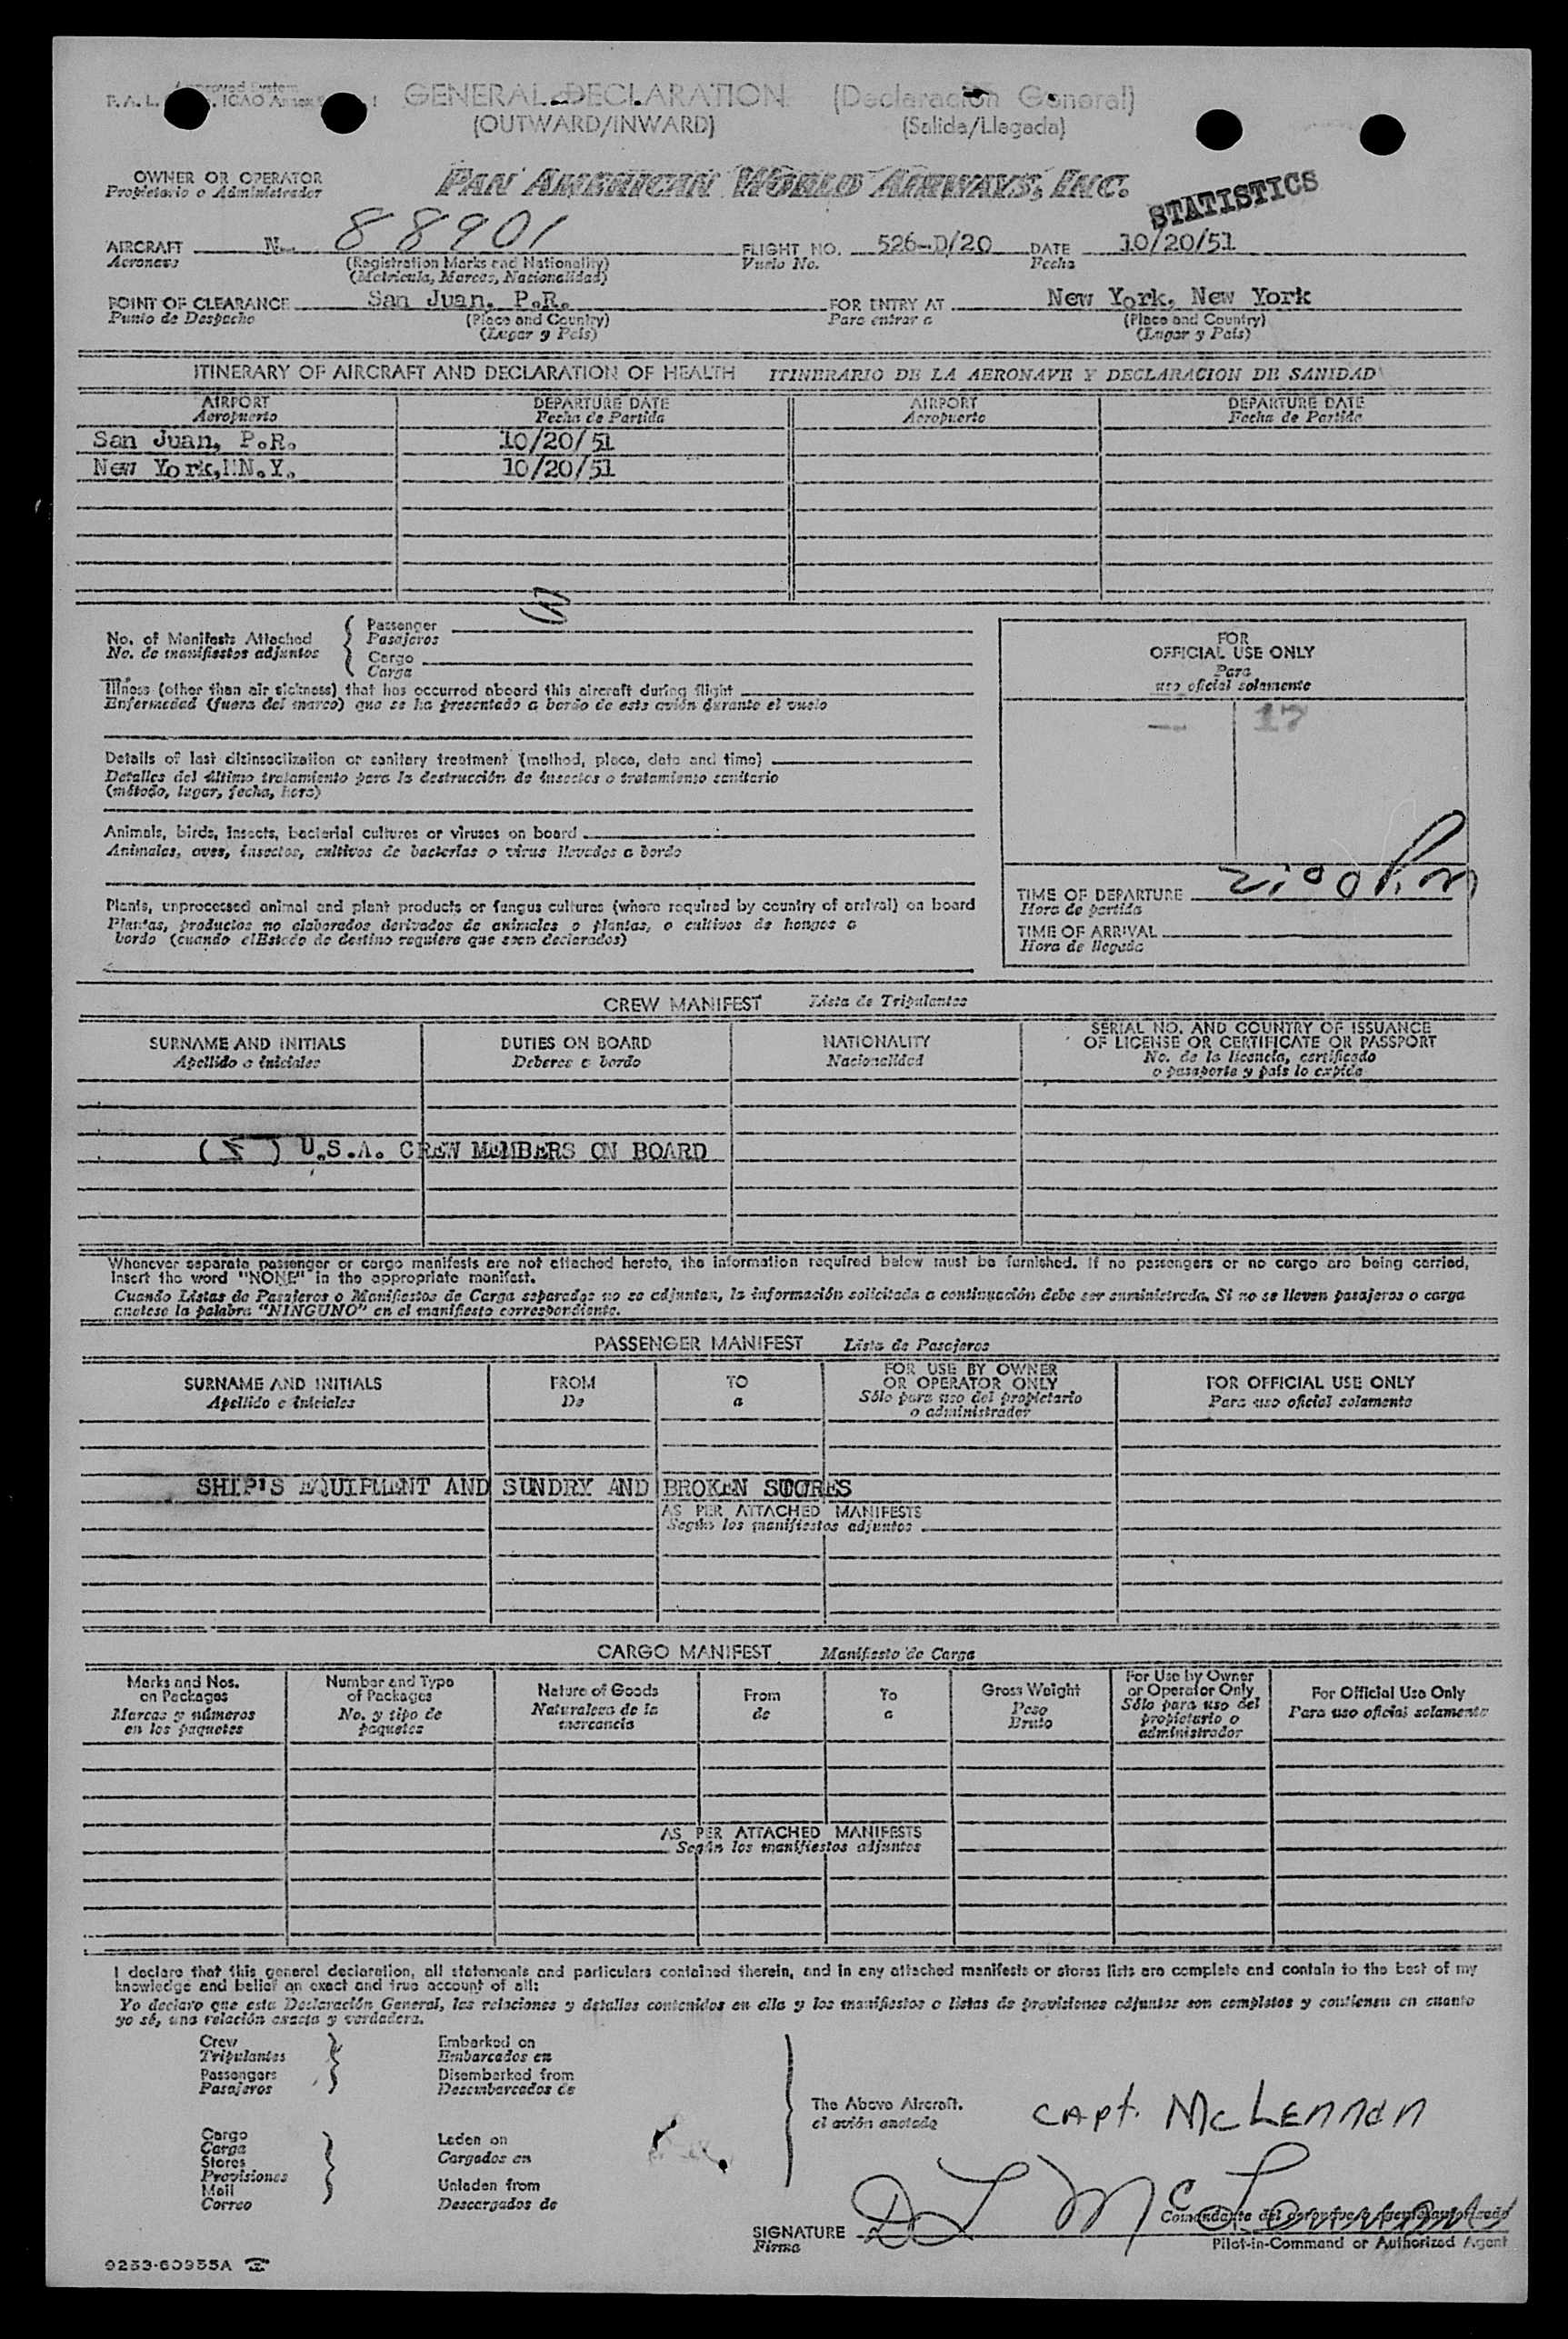 Approved System
F. A. L. ICAO Annex
GENERAL DECLARATION (Declaración General)
(OUTWARD/INWARD) (Salida/Llegada)
OWNER OR OPERATOR
Propietario o Administrador
PAN AMERICAN WORLD AIRWAYS, INC.
STATISTICS
AIRCRAFT N 88901 FLIGHT NO. 526-D/20 DATE 10/20/51
Aeronave (Registration Marks and Nationality) Vuelo No. Fecha
(Matrícula, Marcas, Nacionalidad)
POINT OF CLEARANCE San Juan, P.R. FOR ENTRY AT New York, New York
Punto de Despacho (Place and Country) Para entrar a (Place and Country)
(Lugar y País) (Lugar y País)
ITINERARY OF AIRCRAFT AND DECLARATION OF HEALTH ITINERARIO DE LA AERONAVE Y DECLARACION DE SANIDAD
AIRPORT DEPARTURE DATE AIRPORT DEPARTURE DATE
Aeropuerto Fecha de Partida Aeropuerto Fecha de Partida
San Juan, P.R. 10/20/51
New York, N.Y. 10/20/51
No. of Manifests Attached
No. de manifiestos adjuntos
Passenger
Pasajeros
Cargo
Carga
Illness (other than air sickness) that has occurred aboard this aircraft during flight
Enfermedad (fuera del mareo) que se ha presentado a bordo de este avión durante el vuelo
Details of last disinsectization or sanitary treatment (method, place, date and time)
Detalles del último tratamiento para la destrucción de insectos o tratamiento sanitario
(método, lugar, fecha, hora)
Animals, birds, insects, bacterial cultures or viruses on board
Animales, aves, insectos, cultivos de bacterias o virus llevados a bordo
Plants, unprocessed animal and plant products or fungus cultures (where required by country of arrival) on board
Plantas, productos no elaborados derivados de animales o plantas, o cultivos de hongos a
bordo (cuando el Estado de destino requiere que sean declarados)
FOR
OFFICIAL USE ONLY
Para
uso oficial solamente
— 17
TIME OF DEPARTURE
Hora de partida
TIME OF ARRIVAL
Hora de llegada
CREW MANIFEST Lista de Tripulantes
SURNAME AND INITIALS DUTIES ON BOARD NATIONALITY SERIAL NO. AND COUNTRY OF ISSUANCE
OF LICENSE OR CERTIFICATE OR PASSPORT
Apellido o iniciales Deberes a bordo Nacionalidad No. de la licencia, certificado
o pasaporte y país lo expide
( ) U.S.A. CREW MEMBERS ON BOARD
Whenever separate passenger or cargo manifests are not attached hereto, the information required below must be furnished. If no passengers or no cargo are being carried,
insert the word "NONE" in the appropriate manifest.
Cuando Listas de Pasajeros o Manifiestos de Carga separados no se adjuntan, la información solicitada a continuación debe ser suministrada. Si no se lleven pasajeros o carga
anotese la palabra "NINGUNO" en el manifiesto correspondiente.
PASSENGER MANIFEST Lista de Pasajeros
SURNAME AND INITIALS FROM TO FOR USE BY OWNER
OR OPERATOR ONLY FOR OFFICIAL USE ONLY
Apellido e iniciales De a Sólo para uso del propietario
o administrador Para uso oficial solamente
SHIP'S EQUIPMENT AND SUNDRY AND BROKEN STORES
AS PER ATTACHED MANIFESTS
Según los manifiestos adjuntos
CARGO MANIFEST Manifiesto de Carga
Marks and Nos.
on Packages
Marcas y números
en los paquetes
Number and Type
of Packages
No. y tipo de
paquetes
Nature of Goods
Naturaleza de la
mercancia
From
de
To
a
Gross Weight
Peso
Bruto
For Use by Owner
or Operator Only
Sólo para uso del
propietario o
administrador
For Official Use Only
Para uso oficial solamente
AS PER ATTACHED MANIFESTS
Según los manifiestos adjuntos
I declare that this general declaration, all statements and particulars contained therein, and in any attached manifests or stores lists are complete and contain to the best of my
knowledge and belief an exact and true account of all:
Yo declaro que esta Declaración General, las relaciones y detalles contenidos en ella y los manifiestos o listas de provisiones adjuntos son completos y contienen en cuanto
yo sé, una relación exacta y verdadera.
Crew
Tripulantes
Passengers
Pasajeros
Embarked on
Embarcados en
Disembarked from
Desembarcados de
Cargo
Carga
Stores
Provisiones
Mail
Correo
Laden on
Cargados en
Unladen from
Descargados de
The Above Aircraft.
el avión anotado
CAPT. McLENNAN
SIGNATURE D L McLennan
Firma
Comandante del aeronave o agente autorizado
Pilot-in-Command or Authorized Agent
9253-60955A